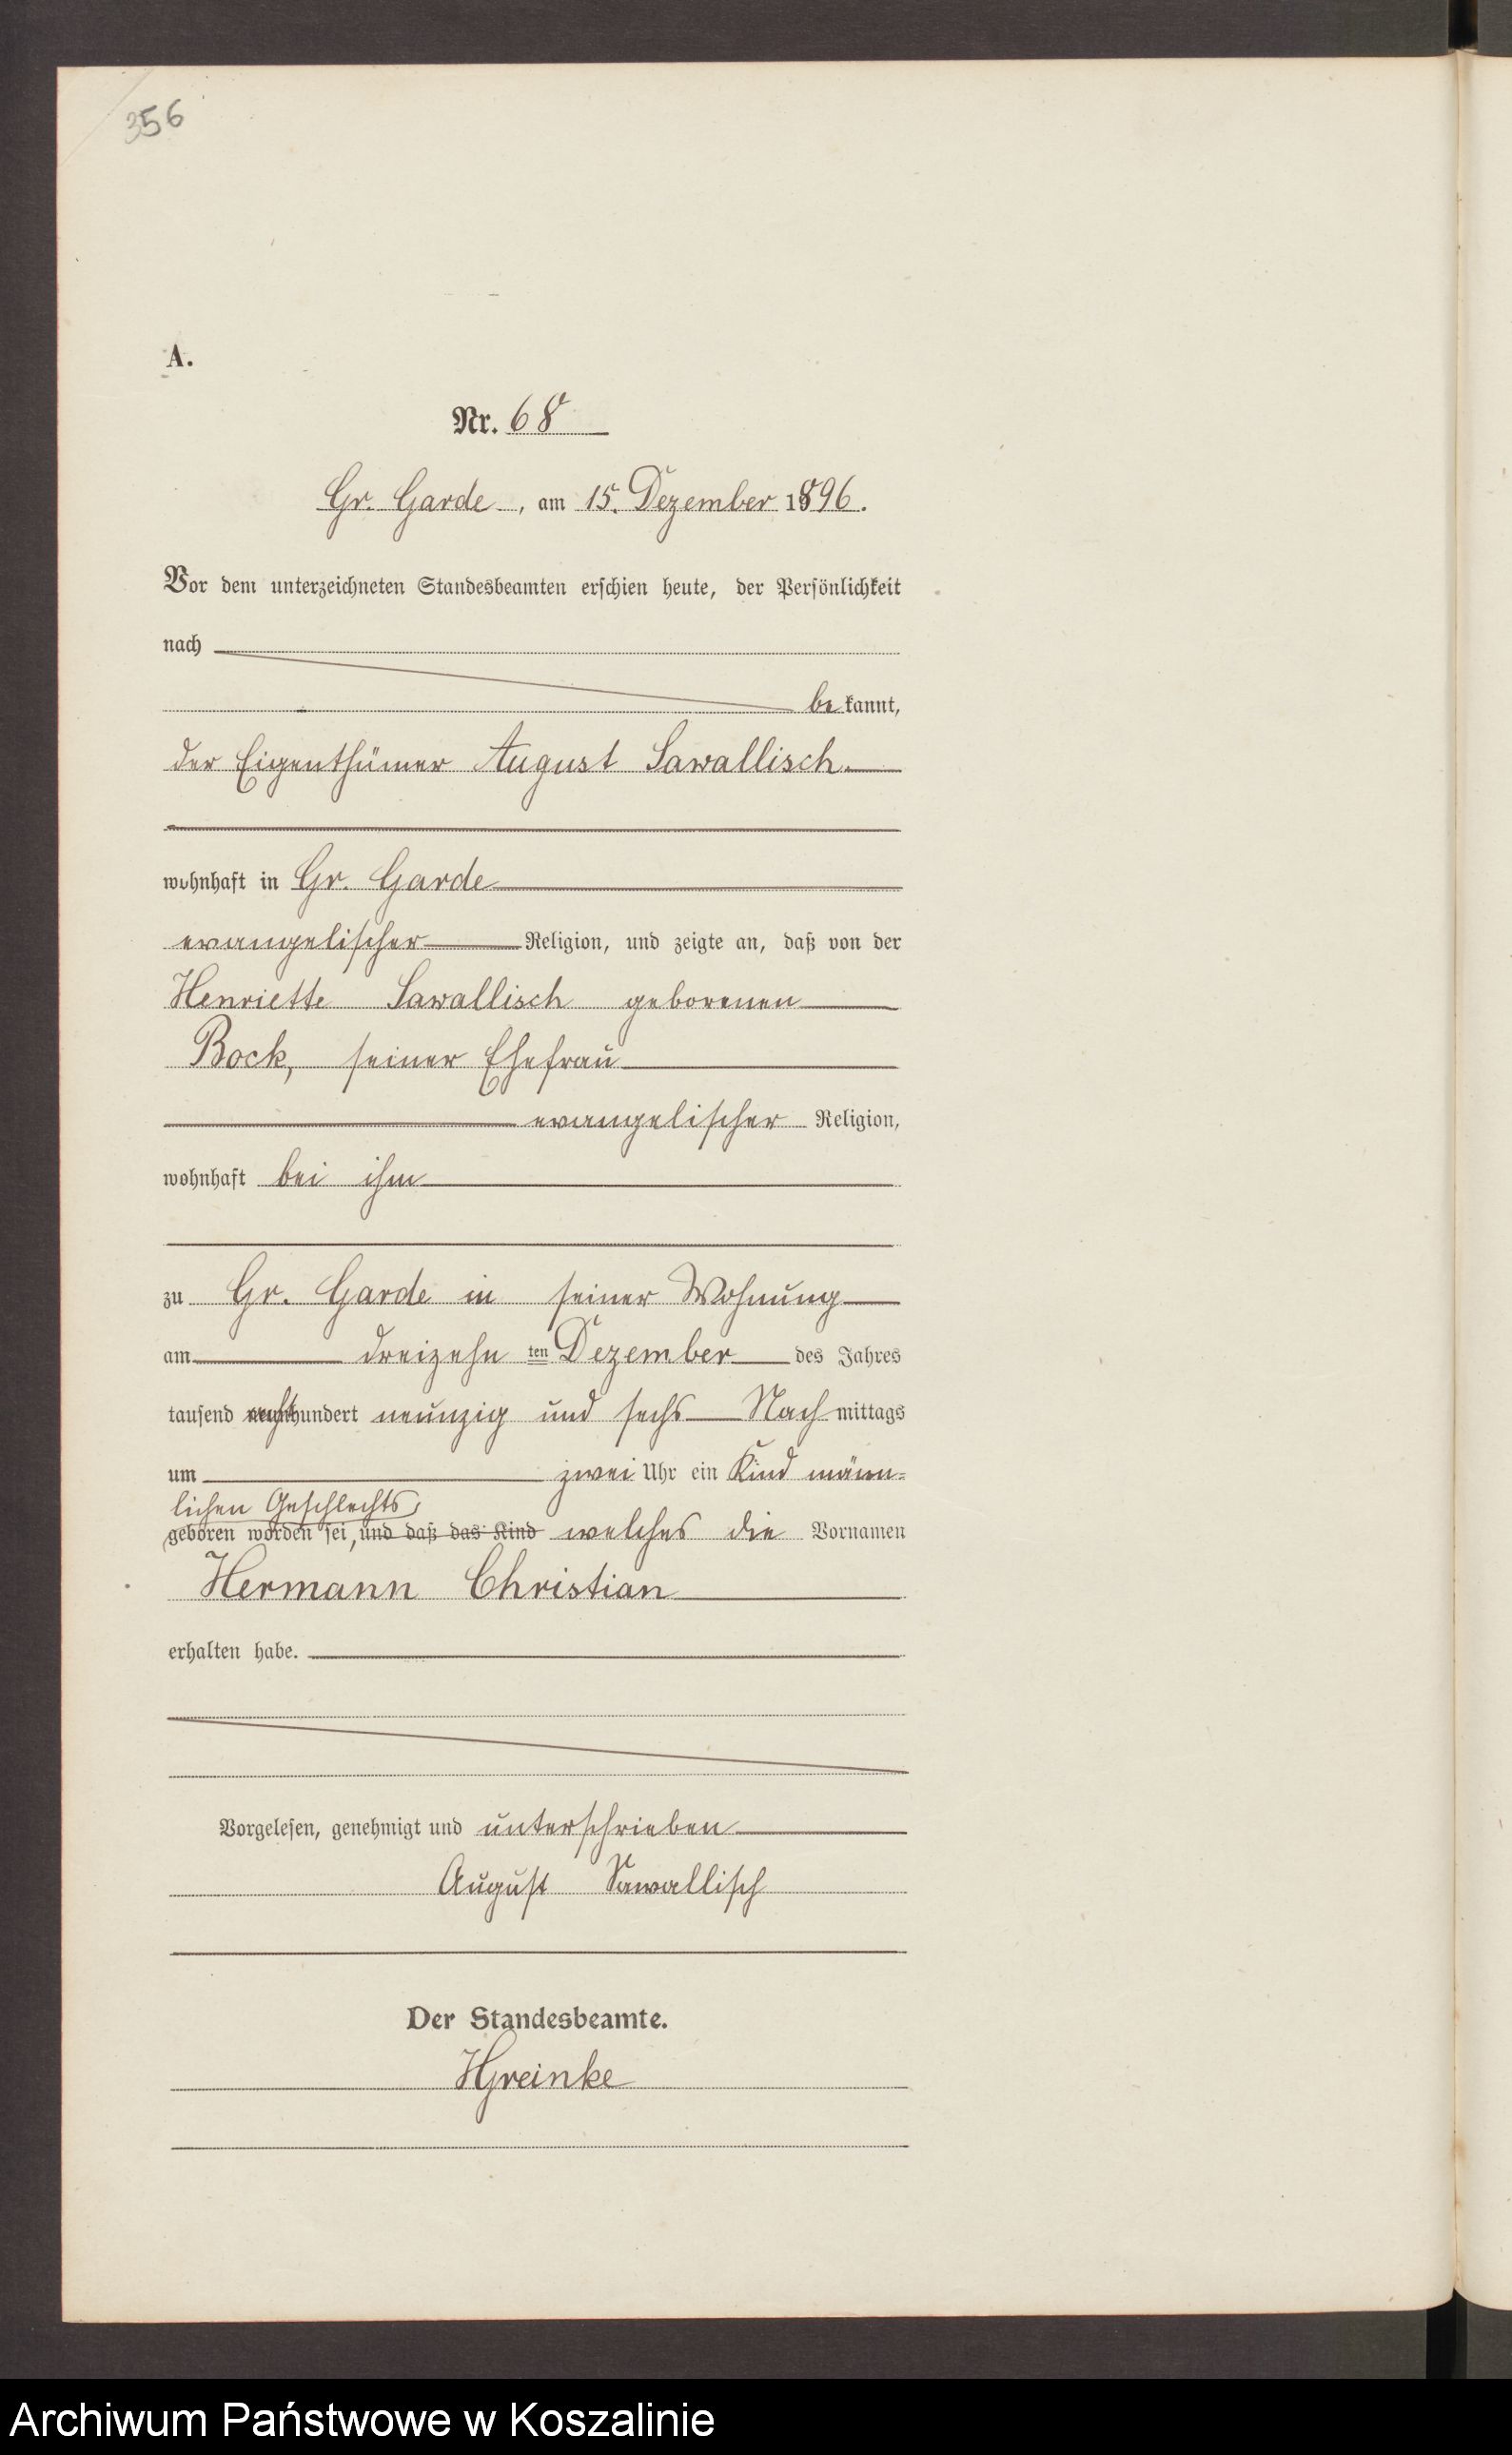 356
A.
Nr. 68
Gr. Garde, am 15. Dezember 1896.
Vor dem unterzeichneten Standesbeamten erschien heute, der Persönlichkeit
nach
bekannt,
der Eigenthümer August Sawallisch.
wohnhaft in Gr. Garde
evangelischer Religion, und zeigte an, daß von der
Henriette Sawallisch geborenen
Bock, seiner Ehefrau
evangelischer Religion,
wohnhaft bei ihm
zu Gr. Garde in seiner Wohnung
am dreizehn ten Dezember des Jahres
tausend achthundert neunzig und sechs Nachmittags
um zwei Uhr ein Kind männ=
lichen Geschlechts,
geboren worden sei, und daß das Kind welches die Vornamen
Hermann Christian
erhalten habe.
Vorgelesen, genehmigt und unterschrieben
August Sawallisch
Der Standesbeamte.
HGreinke
Archiwum Państwowe w Koszalinie